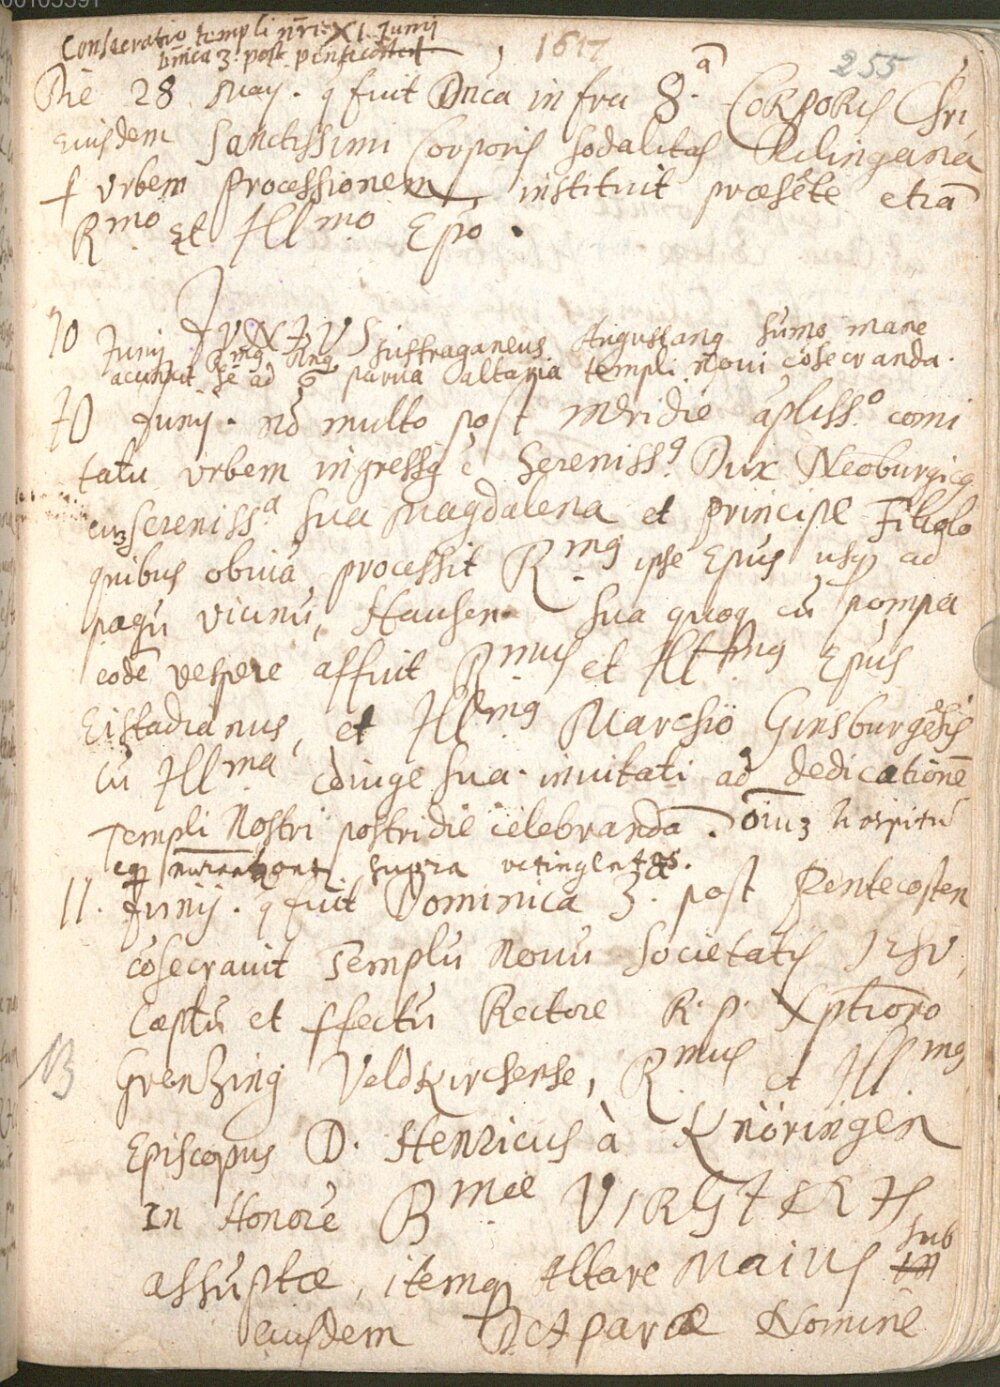 00103391
Consecratio templi nr̄i XI. Junij
Dnīca 3. post pentecosten , 1617
255
Die 28 May. q̄ fuit Dnīca infra 8.ᵃ Corporis Chrī,
Eiusdem Sanctissimi Corporis sodalitas Dilingana
ꝑ vrbem Processionem instituit præsēte etiā
Rmo et Illmo Epō.
JUNIUS
10 Junij Rmg suffraganeus Augustang sumo mane
ad 6 parua altaria templi noui cōsecranda.
10 Junij. nō multo post meridie āpliss.º comi
tatu vrbem ingressg ē Sereniss.g Dux Neoburgicg
cuʒ Sereniss.ᵃ sua Magdalena et principe Filiolo
quibus obviā processit Rmg ipse Epus usq ad
pagū vicinū, Hausen sua quoq cū pompa
eodē vespere affuit Rmus et Illmg Epus
Eistadianus, et Illmg Marchio Ginsburgēsis
cū Illma cōiuge sua. inuitati ad dedicationē
Templi Nostri postridie celebrandā. oīuʒ hospitū
supra octingentos.
11. Junij. q̄ fuit Dominica 3.ᵃ post Pentecosten
cōsecravit Templū Nouū Societatis IESV,
Cæptū et ꝑfectū Rectore R. P. Xptioro
NB
Grenzing Veldkirchense, Rmus et Illmg
Episcopus D. Henricus à Knöringen
In Honorē Bmæ VIRGINIS
assūptæ, itemq Altare Maius sub
eiusdem DEIparæ Nomine